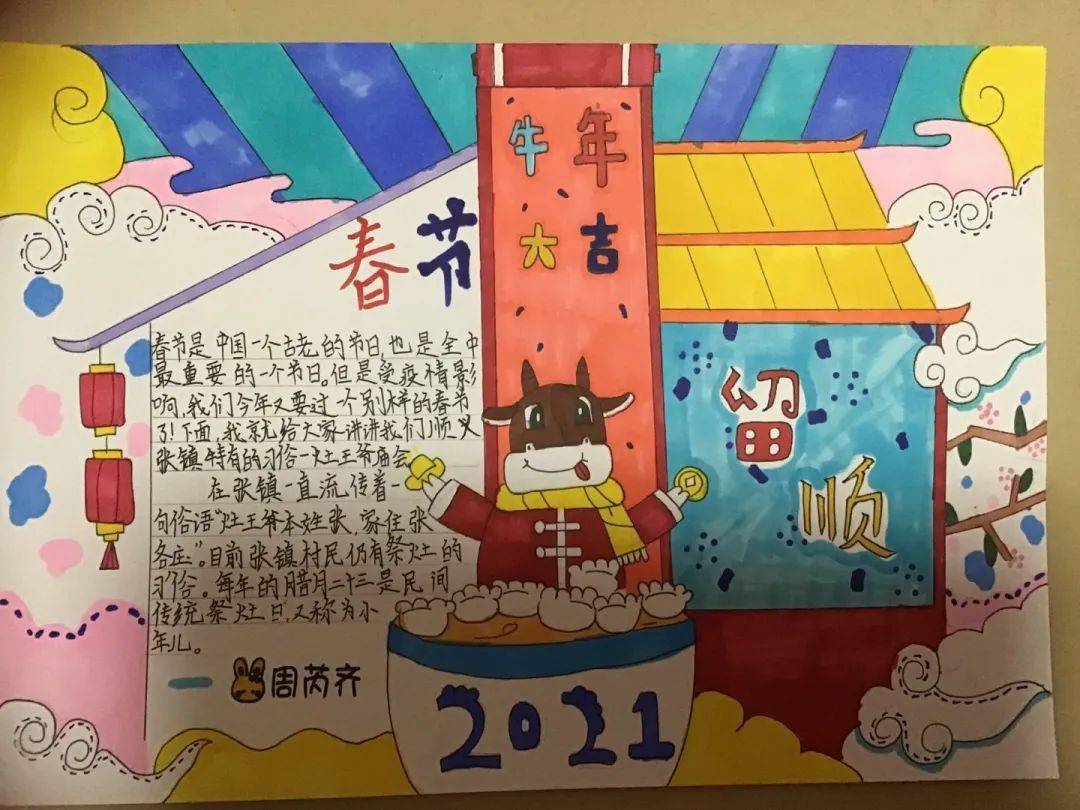 牛年
大吉
春节
春节是中国一个古老的节日,也是全中
最重要的一个节日。但是受疫情影
响,我们今年又要过一个别样的春节
了!下面,我就给大家讲讲我们顺义
张镇特有的习俗—灶王爷庙会
在张镇一直流传着一
句俗语“灶王爷本姓张,家住张
各庄”。目前张镇村民仍有祭灶的
习俗。每年的腊月二十三是民间
传统祭灶日,又称为小
年儿。
一 周芮齐
留
顺
2021